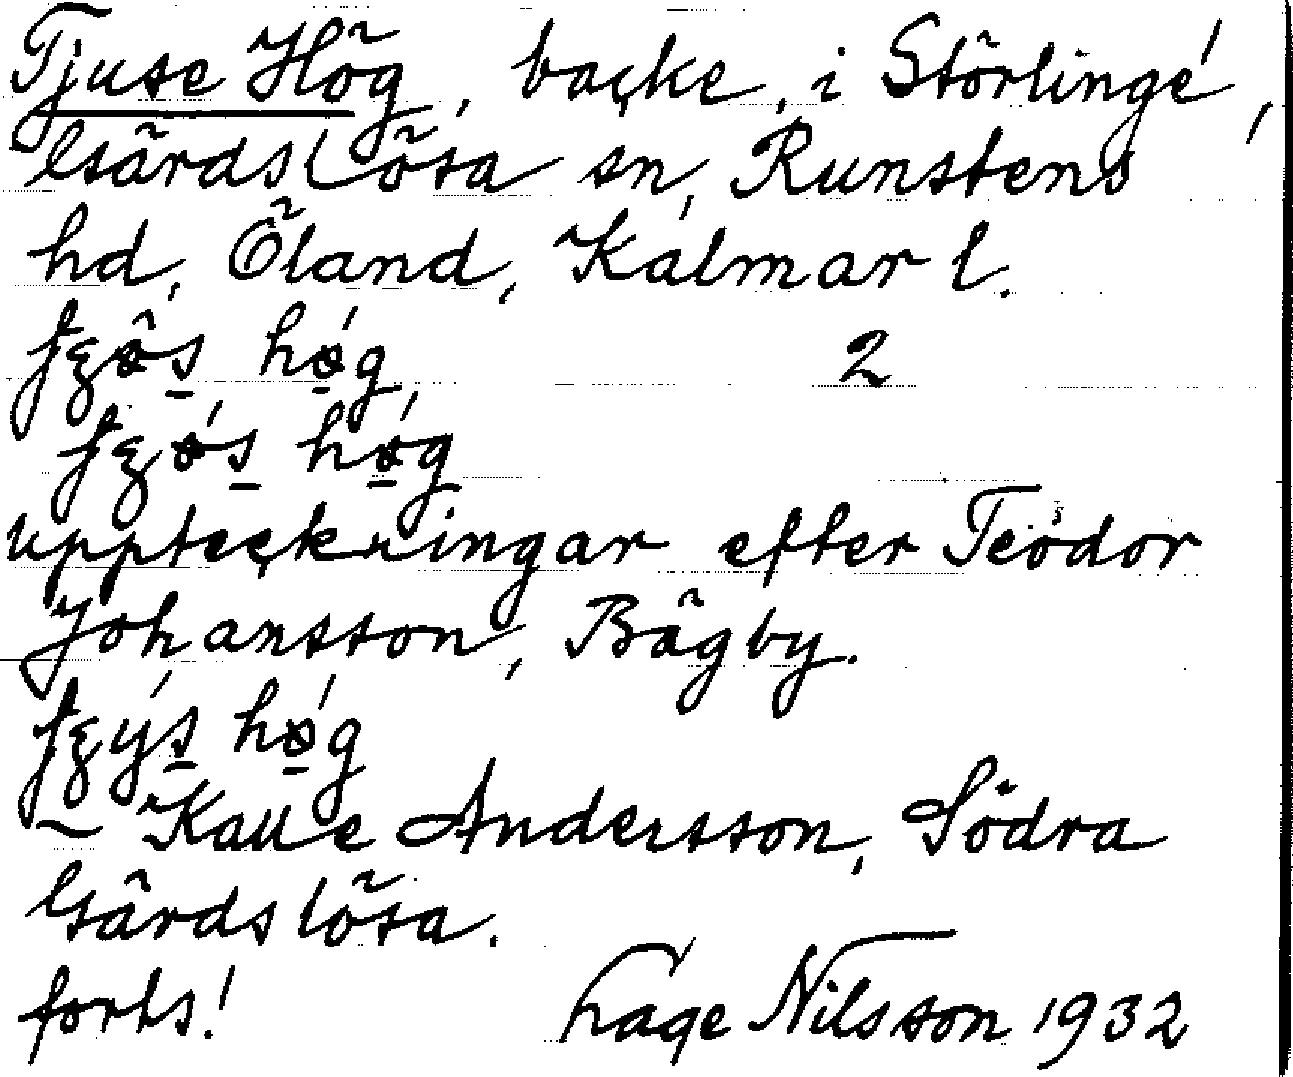 Tjuse Hög, backe, i Störlinge,
Gärdslösa sn, Runstens
hd, Öland, Kalmar l.
2
uppteckningar efter Teodor
Johansson, Bägby.
– Kalle Andersson, Södra
Gärdslösa.
forts! Hage Nilsson 1932